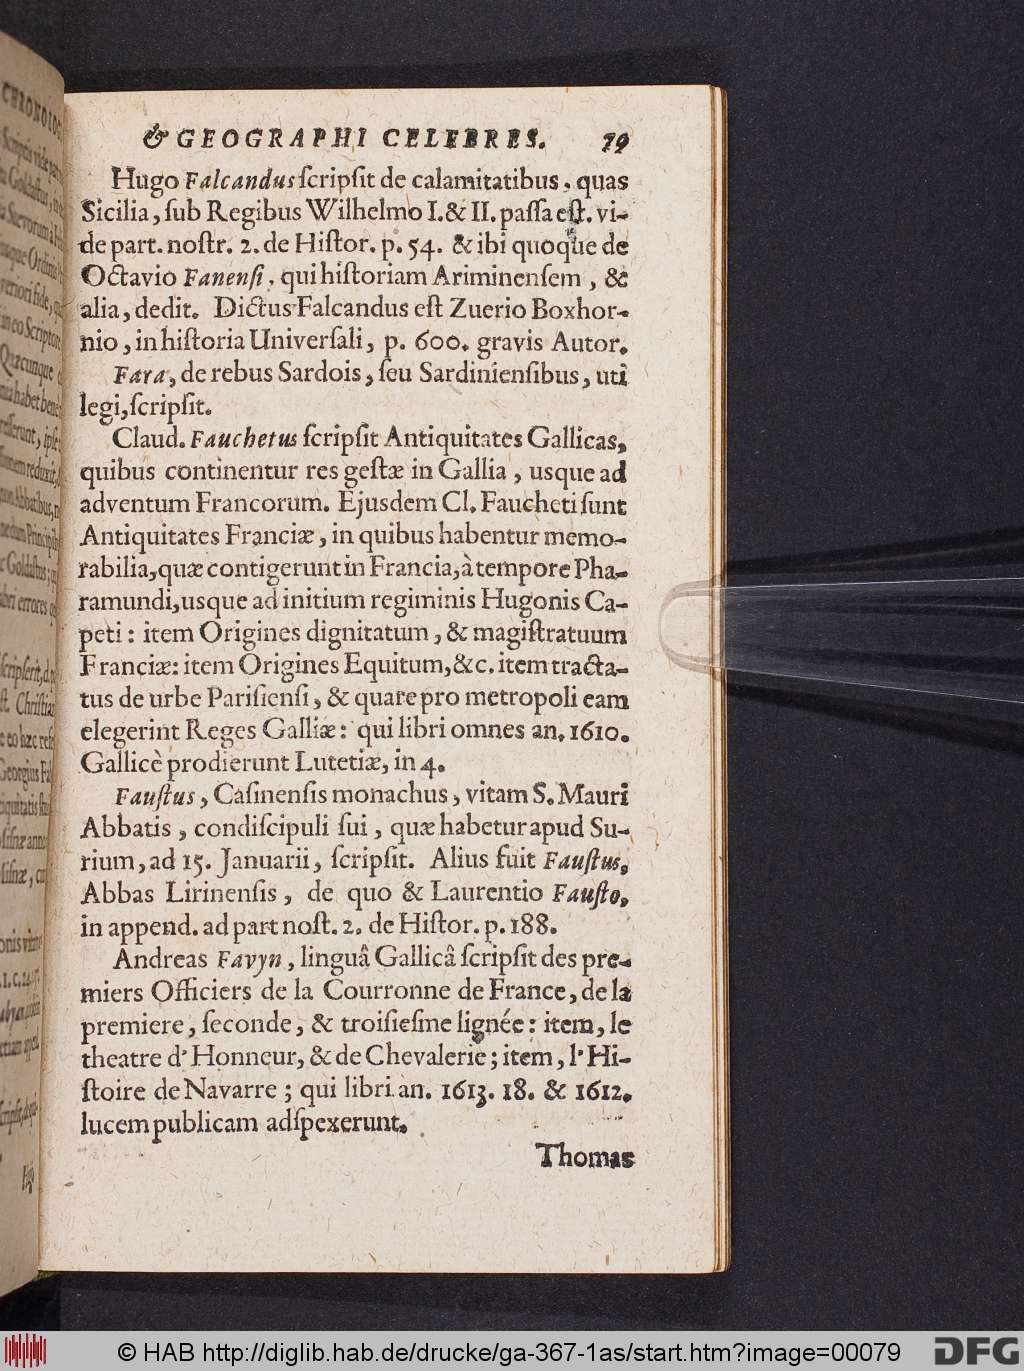 & GEOGRAPHI CELEBRES. 79
Hugo Falcandus ſcripſit de calamitatibus, quas
Sicilia, ſub Regibus Wilhelmo I. & II. paſſa eſt. vi-
de part. noſtr. 2. de Hiſtor. p. 54. & ibi quoque de
Octavio Fanenſi, qui hiſtoriam Ariminenſem, &
alia, dedit. Dictus Falcandus eſt Zuerio Boxhor-
nio, in hiſtoria Univerſali, p. 600. gravis Autor.
Fara, de rebus Sardois, ſeu Sardinienſibus, uti
legi, ſcripſit.
Claud. Fauchetus ſcripſit Antiquitates Gallicas,
quibus continentur res geſtæ in Gallia, usque ad
adventum Francorum. Ejusdem Cl. Faucheti ſunt
Antiquitates Franciæ, in quibus habentur memo-
rabilia, quæ contigerunt in Francia, à tempore Pha-
ramundi, usque ad initium regiminis Hugonis Ca-
peti: item Origines dignitatum, & magiſtratuum
Franciæ: item Origines Equitum, &c. item tracta-
tus de urbe Pariſienſi, & quare pro metropoli eam
elegerint Reges Galliæ: qui libri omnes an. 1610.
Gallicè prodierunt Lutetiæ, in 4.
Fauſtus, Caſinenſis monachus, vitam S. Mauri
Abbatis, condiſcipuli ſui, quæ habetur apud Su-
rium, ad 15. Januarii, ſcripſit. Alius fuit Fauſtus,
Abbas Lirinenſis, de quo & Laurentio Fauſto,
in append. ad part noſt. 2. de Hiſtor. p. 188.
Andreas Favyn, linguâ Gallicâ ſcripſit des pre-
miers Officiers de la Courronne de France, de la
premiere, ſeconde, & troiſieſme lignée: item, le
theatre d' Honneur, & de Chevalerie; item, l' Hi-
ſtoire de Navarre; qui libri an. 1613. 18. & 1612.
lucem publicam adſpexerunt.
Thomas
© HAB http://diglib.hab.de/drucke/ga-367-1as/start.htm?image=00079
DFG